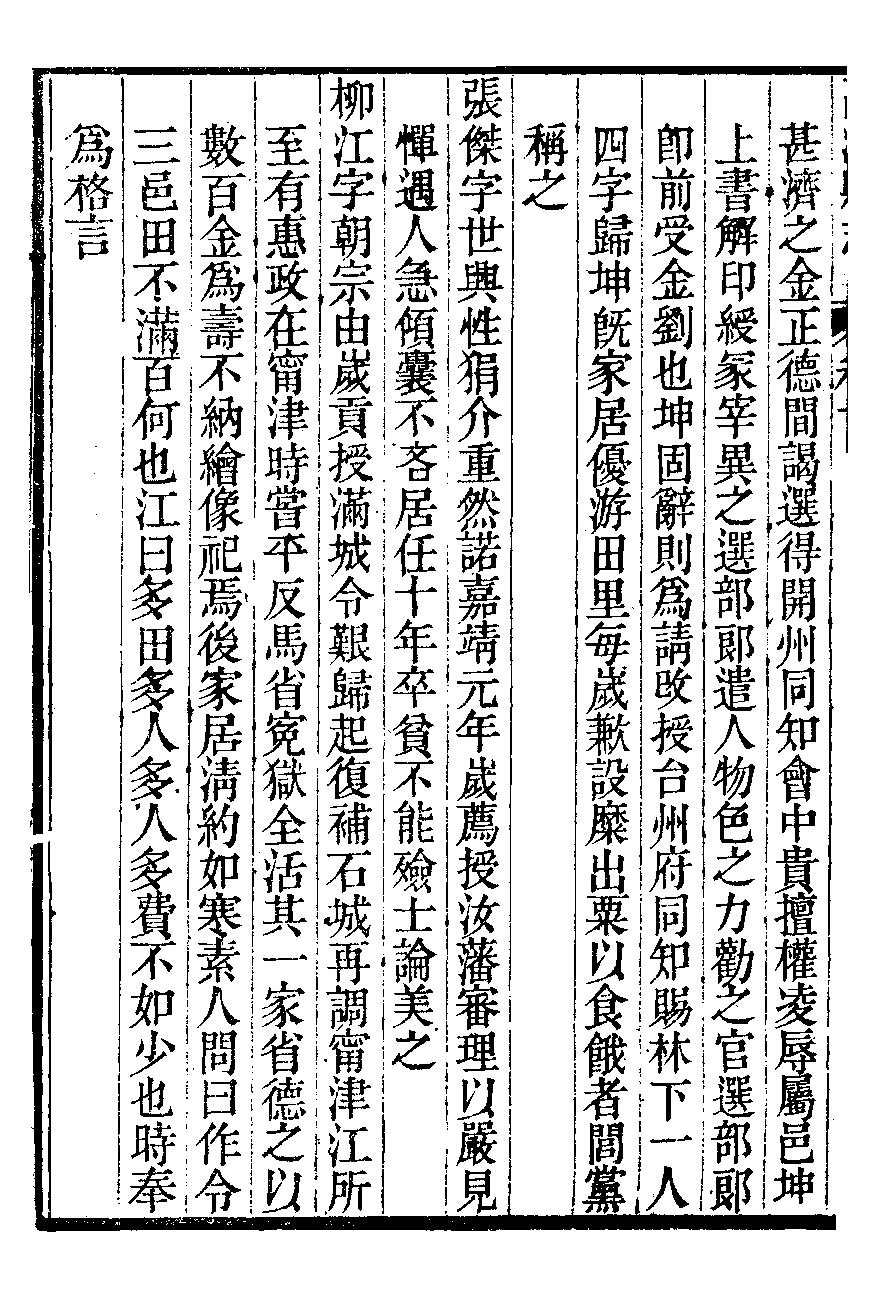 甚濟之金正德間謁選得開州同知會中貴擅權凌辱屬邑坤
上書解印綬冢宰異之選部郎遣人物色之力勸之官選部郎
卽前受金劉也坤固辭則爲請改授台州府同知賜林下一人
四字歸坤旣家居優游田里每歲歉設糜出粟以食餓者閭黨
稱之
張傑字世興性狷介重然諾嘉靖元年歲薦授汝藩審理以嚴見
憚遇人急傾囊不吝居任十年卒貧不能殮士論美之
柳江字朝宗由歲貢授滿城令艱歸起復補石城再調甯津江所
至有惠政在甯津時嘗平反馬省寃獄全活其一家省德之以
數百金爲壽不納繪像祀焉後家居淸約如寒素人問曰作令
三邑田不滿百何也江曰多田多人多人多費不如少也時奉
爲格言